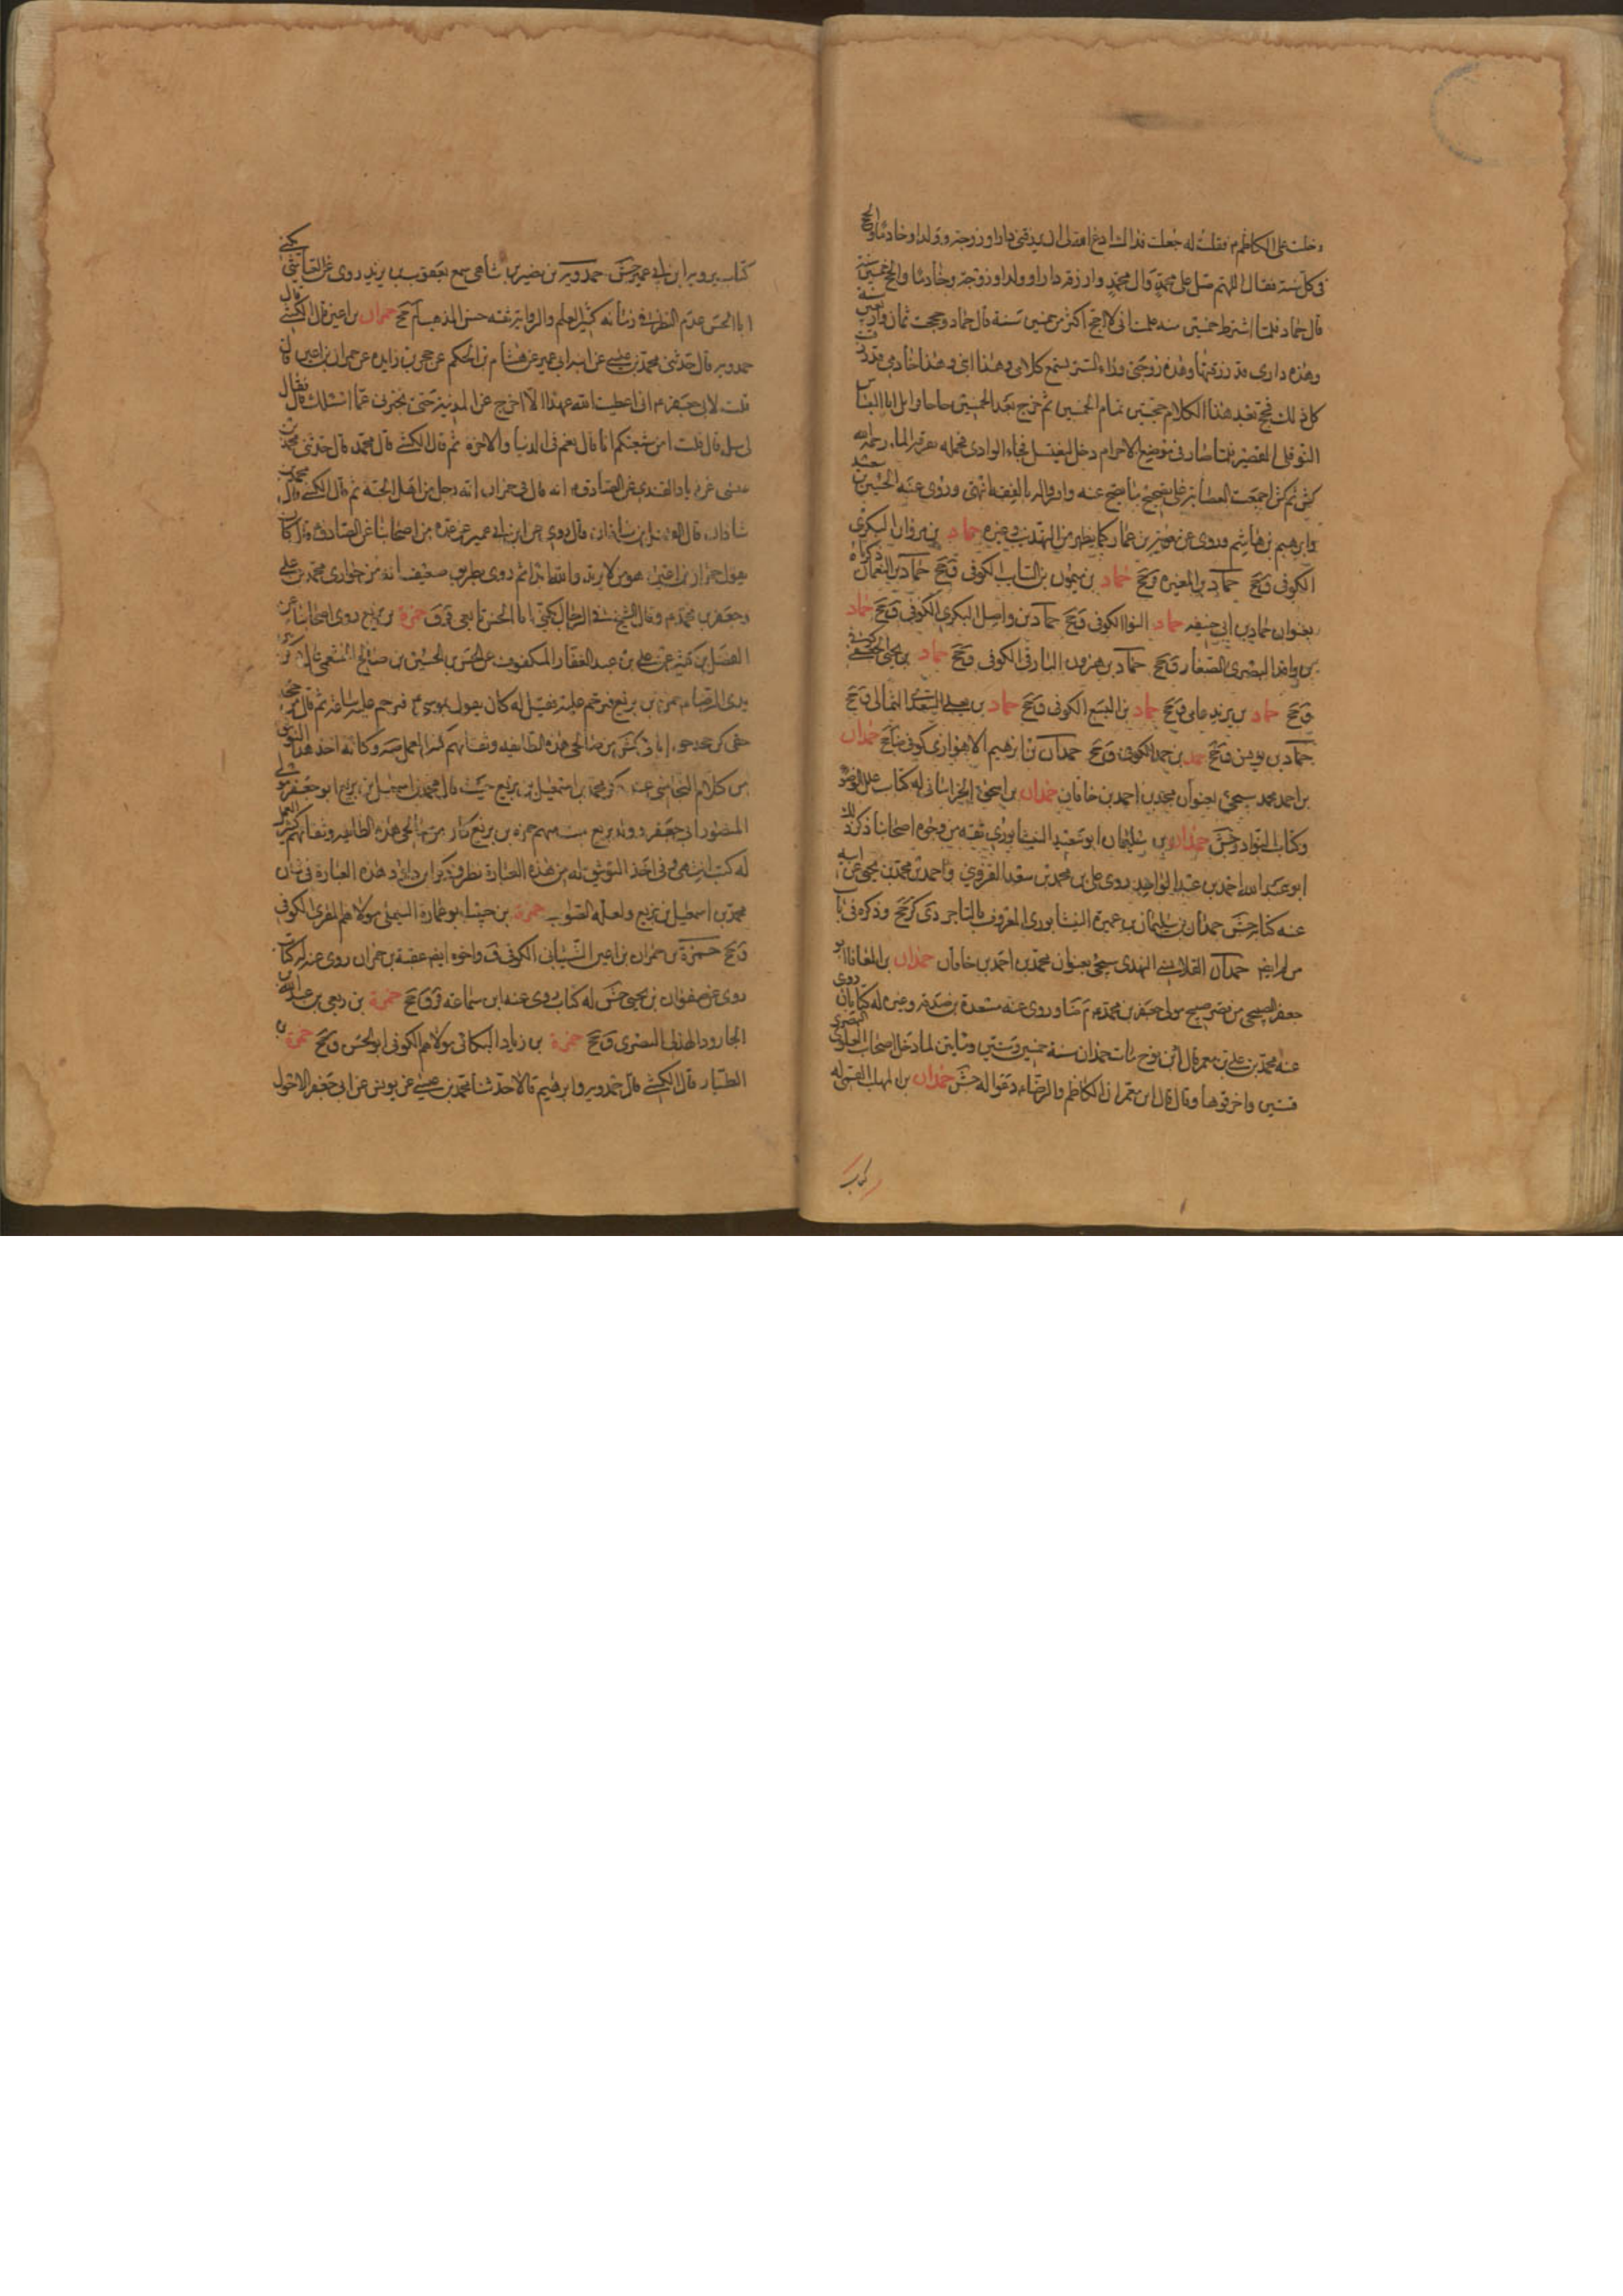 دخلت على الكاظم م فقلت له جعلت فداك ادع الله لى ان يرزقنى دارا وزوجة وولدا وخادما والحج
فى كل سنة فقال اللهم صل على محمد وآل محمد وارزقه دارا وولدا وزوجة وخادما والحج خمسين سنة
قال حماد فلما اشترط خمسين سنة علمت انى لا احج اكثر من خمسين سنة قال حماد وحججت ثمان واربعين سنة
وهذه دارى قد رزقتها وهذه زوجتى وراء الستر يسمع كلامى وهذا ابنى وهذا خادمى قد رزقت
كل ذلك فحج بعد هذا الكلام حجتين تمام الخمسين ثم خرج بعد الخمسين حاجا وابل ابا العباس
النوفلى القصير فلما صار فى موضع الاحرام دخل ليغتسل فجاء الوادى فحمله فغرقه الماء رحمه الله
كش ثم كش اجمعت العصابة على تصحيح ما يصح عنه واقروا له بالفقه انتهى وروى عنه الحسين بن سعيد
وابرهيم بن هاشم وروى عن معوية بن عمار كما يظهر من التهذيب وغيره حماد بن مروان البكرى
الكوفى ق جخ حماد بن المغيرة ق جخ حماد بن ميمون بن السائب الكوفى ق جخ حماد بن النعمان ذكرناه
بعنوان حماد بن ابى حنيفه حماد النوا الكوفى ق جخ حماد بن واصل البكرى الكوفى ق جخ حماد
بن واقد البصرى الصفار ق جخ حماد بن هرون البارقى الكوفى ق جخ حماد بن يحيى الجعفى كوفى
ق جخ حماد بن يزيد عامى ق جخ حماد بن اليسع الكوفى ق جخ حماد بن السعدى الثمالى ق جخ
حماد بن يونس ق جخ حمد بن حمد الكوفى ق جخ حمدان بن ابرهيم الاهوازى كوفى ضا جخ حمدان
بن احمد محمد سيجئ بعنوان محمد بن احمد بن خاقان حمدان بن اسحق الخراسانى له كتاب علل الوضوء
وكتاب النوادر جش حمدان بن سليمان ابو سعيد النيشابورى ثقة من وجوه اصحابنا ذكر ذلك
ابو عبد الله احمد بن عبد الواحد روى على بن محمد بن سعد القزوينى واحمد بن محمد بن يحيى عن ابيه
عنه كتابه جش حمدان بن سليمان بن عميرة النيشابورى المعروف بالتاجر دى كر جخ وذكره فى باب
من لم ايضا حمدان القلانسى النهدى سيجئ بعنوان محمد بن احمد بن خاقان حمدان بن المعافا ابو
جعفر الصبيحى من قصر صبيح مولى جعفر بن محمد م م ضا وروى عنه مسعدة بن صدقة وغيره له كتابان روى
عنه محمد بن على بن معمر قال ابن نوح مات حمدان سنة خمس وستين ومأتين لما دخل اصحاب العلوى البصرى
قسين واخرقوها وقال قال ابن معمر ان الكاظم والرضاء دعوا له جش حمدان بن المهلب القمى له
كتاب يرويه ابن ابى عمير جش حمدويه بن نصير بن شاهى سمع يعقوب بن يزيد روى عن العياشى يكنى
ابا الحسن عديم النظير فى زمانه كثير العلم والرواية ثقة حسن المذهب لم جخ حمران بن اعين قال الكشى قال
حمدويه قال حدثنى محمد بن عيسى عن ابن ابى عمير عن هشام بن الحكم عن حجر بن زايده عن حمران بن اعين قال
قلت لابى جعفر م انى اعطيت الله عهدا ألا اخرج عن المدينة حتى تخبرنى عما اسئلك قال فقال
لى سل قال قلت امن شيعتكم انا قال نعم فى الدنيا والاخرة ثم قال الكشى قال محمد قال حدثنى محمد بن
عيسى عن زياد القندى عن الصادق م انه قال فى حمران انه رجل من اهل الجنة ثم قال الكشى قال محمد بن
شاذان قال الفضل بن شاذان قال روى عن ابن ابى عمير عن عدة من اصحابنا عن الصادق م قال كان
يقول حمران بن اعين مومن لا يرتد والله ابدا ثم روى بطريق ضعيف انه من حوارى محمد بن على
وجعفر بن محمد م وقال الشيخ فى الرجال يكنى ابا الحسن تابعى ق ق حمزة بن بزيع روى اصحابنا عن
الفضل بن كثير عن على بن عبد الغفار المكفوف عن الحسن بن الحسين بن صالح الخثعمى قال ذكر
بدى الرضاء حمزة بن بزيع فترحم عليه فقيل له كان يقول بموسى م فترحم عليه ساعة ثم قال
من صالحى هذه الطائفة وثقاتهم كثير العمل صه وكانه اخذ هذا التوثيق
من كلام النجاشى عند ذكر محمد بن اسمعيل بن بزيع حيث قال محمد بن اسمعيل بن بزيع ابو جعفر مولى
المنصور ابى جعفر وولد بزيع بيت منهم حمزة بن بزيع كان من صالحى هذه الطائفة وثقاتهم كثير العمل
له كتب انتهى وفى اخذ التوثيق له من هذه العبارة نظر وذكر ابن داود هذه العبارة فى شان
محمد بن اسمعيل بن بزيع ولعله الصواب حمزة بن حبيب ابو عمارة التيمى مولاهم المقرى الكوفى
ق جخ حمزة بن حمران بن اعين الشيبانى الكوفى ق واخوه ايضا عقبة بن حمران روى عنه له كتاب
روى عن صفوان بن يحيى جش له كتاب روى عنه ابن سماعه ق ق جخ حمزة بن ربعى بن عبد الله بن
الجارود الهذلى البصرى ق جخ حمزة بن زياد البكائى مولاهم الكوفى ابو الحسن ق جخ حمزة بن
الطيار قال الكشى قال حمدويه وابرهيم قالا حدثنا محمد بن عيسى عن يونس عن ابى جعفر الاحول